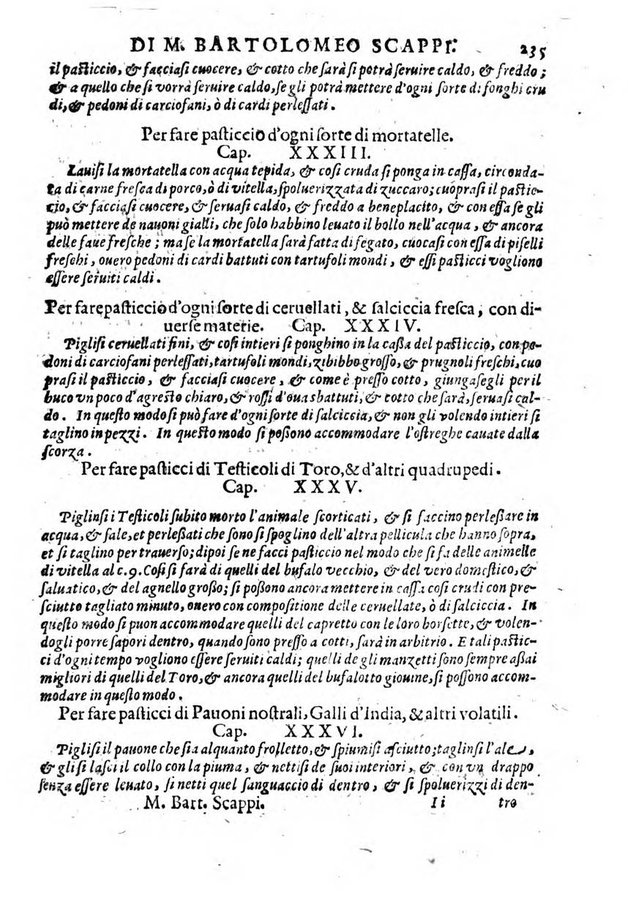 DI M. BARTOLOMEO SCAPPI. 235
il pasticcio, & facciasi cuocere, & cotto che sarà si potrà seruire caldo, & freddo;
& a quello che si vorrà seruire caldo, se gli potrà mettere d'ogni sorte di fonghi cru
di, & pedoni di carciofani, ò di cardi perlessati.
Per fare pasticcio d'ogni sorte di mortatelle.
Cap. XXXIII.
Lauisi la mortatella con acqua tepida, & cosi cruda si ponga in cassa, circonda-
ta di carne fresca di porco, ò di vitella, spoluerizzata di zuccaro; cuoprasi il pastic-
cio, & facciasi cuocere, & seruasi caldo, & freddo a beneplacito, & con essa se gli
può mettere de nauoni gialli, che solo habbino leuato il bollo nell'acqua, & ancora
delle faue fresche; ma se la mortatella sarà fatta di fegato, cuocasi con essa di piselli
freschi, ouero pedoni di cardi battuti con tartufoli mondi, & essi pasticci vogliono
essere seruiti caldi.
Per fare pasticcio d'ogni sorte di ceruellati, & salciccia fresca, con di-
uerse materie. Cap. XXXIV.
Piglisi ceruellati fini, & cosi intieri si ponghino in la cassa del pasticcio, con pe-
doni di carciofani perlessati, tartufoli mondi, zibibbo grosso, & prugnoli freschi, cuo
prasi il pasticcio, & facciasi cuocere, & come è presso cotto, giungasegli per il
buco un poco d'agresto chiaro, & rossi d'oua sbattuti, & cotto che sarà, seruasi cal-
do. In questo modo si può fare d'ogni sorte di salciccia, & non gli volendo intieri si
taglino in pezzi. In questo modo si possono accommodare l'ostreghe cauate dalla
scorza.
Per fare pasticci di Testicoli di Toro, & d'altri quadrupedi.
Cap. XXXV.
Piglinsi i Testicoli subito morto l'animale scorticati, & si faccino perlessare in
acqua, & sale, et perlessati che sono si spoglino dell'altra pellicula che hanno sopra,
et si taglino per trauerso; dipoi se ne facci pasticcio nel modo che si fa delle animelle
di vitella al c. 9. Cosi si farà di quelli del bufalo vecchio, & del verro domestico, &
saluatico, & del agnello grosso; si possono ancora mettere in cassa cosi crudi con pre-
sciutto tagliato minuto, ouero con compositione delle ceruellate, ò di salciccia. In
questo modo si puon accommodare quelli del capretto con le loro borsette, & volen-
dogli porre sapori dentro, quando sono presso a cotti, sarà in arbitrio. E tali pastic-
ci d'ogni tempo vogliono essere seruiti caldi; quelli de gli manzetti sono sempre assai
migliori di quelli del Toro, & ancora quelli del bufalotto giouine, si possono accom-
modare in questo modo.
Per fare pasticci di Pauoni nostrali, Galli d'India, & altri volatili.
Cap. XXXVI.
Piglisi il pauone che sia alquanto frolletto, & spiumisi asciutto; taglinsi l'ale,
& gli si lasci il collo con la piuma, & nettisi de suoi interiori, & con un drappo
senza essere leuato, si netti quel sanguaccio di dentro, & si spoluerizzi di den-
M. Bart. Scappi. Ii tro